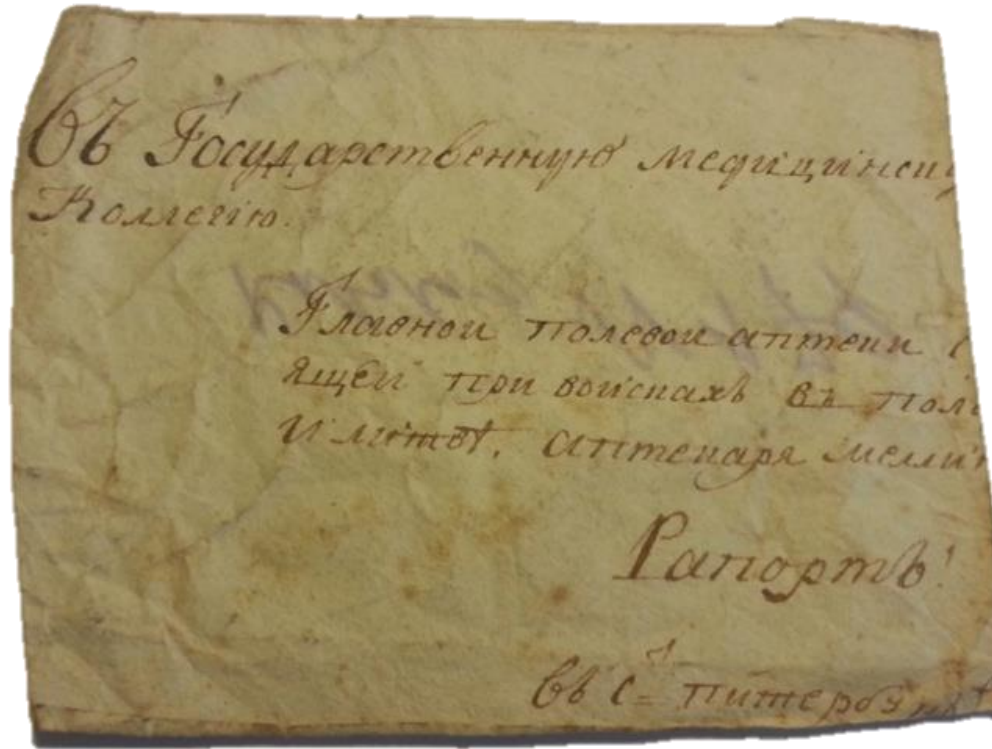 Въ Государственную медицинску
Коллегiю.
Главной полевой аптеки с
ящей при войскахъ въ пол
И литвѣ, аптекаря мелли
Рапортъ!
въ С= питербургѣ